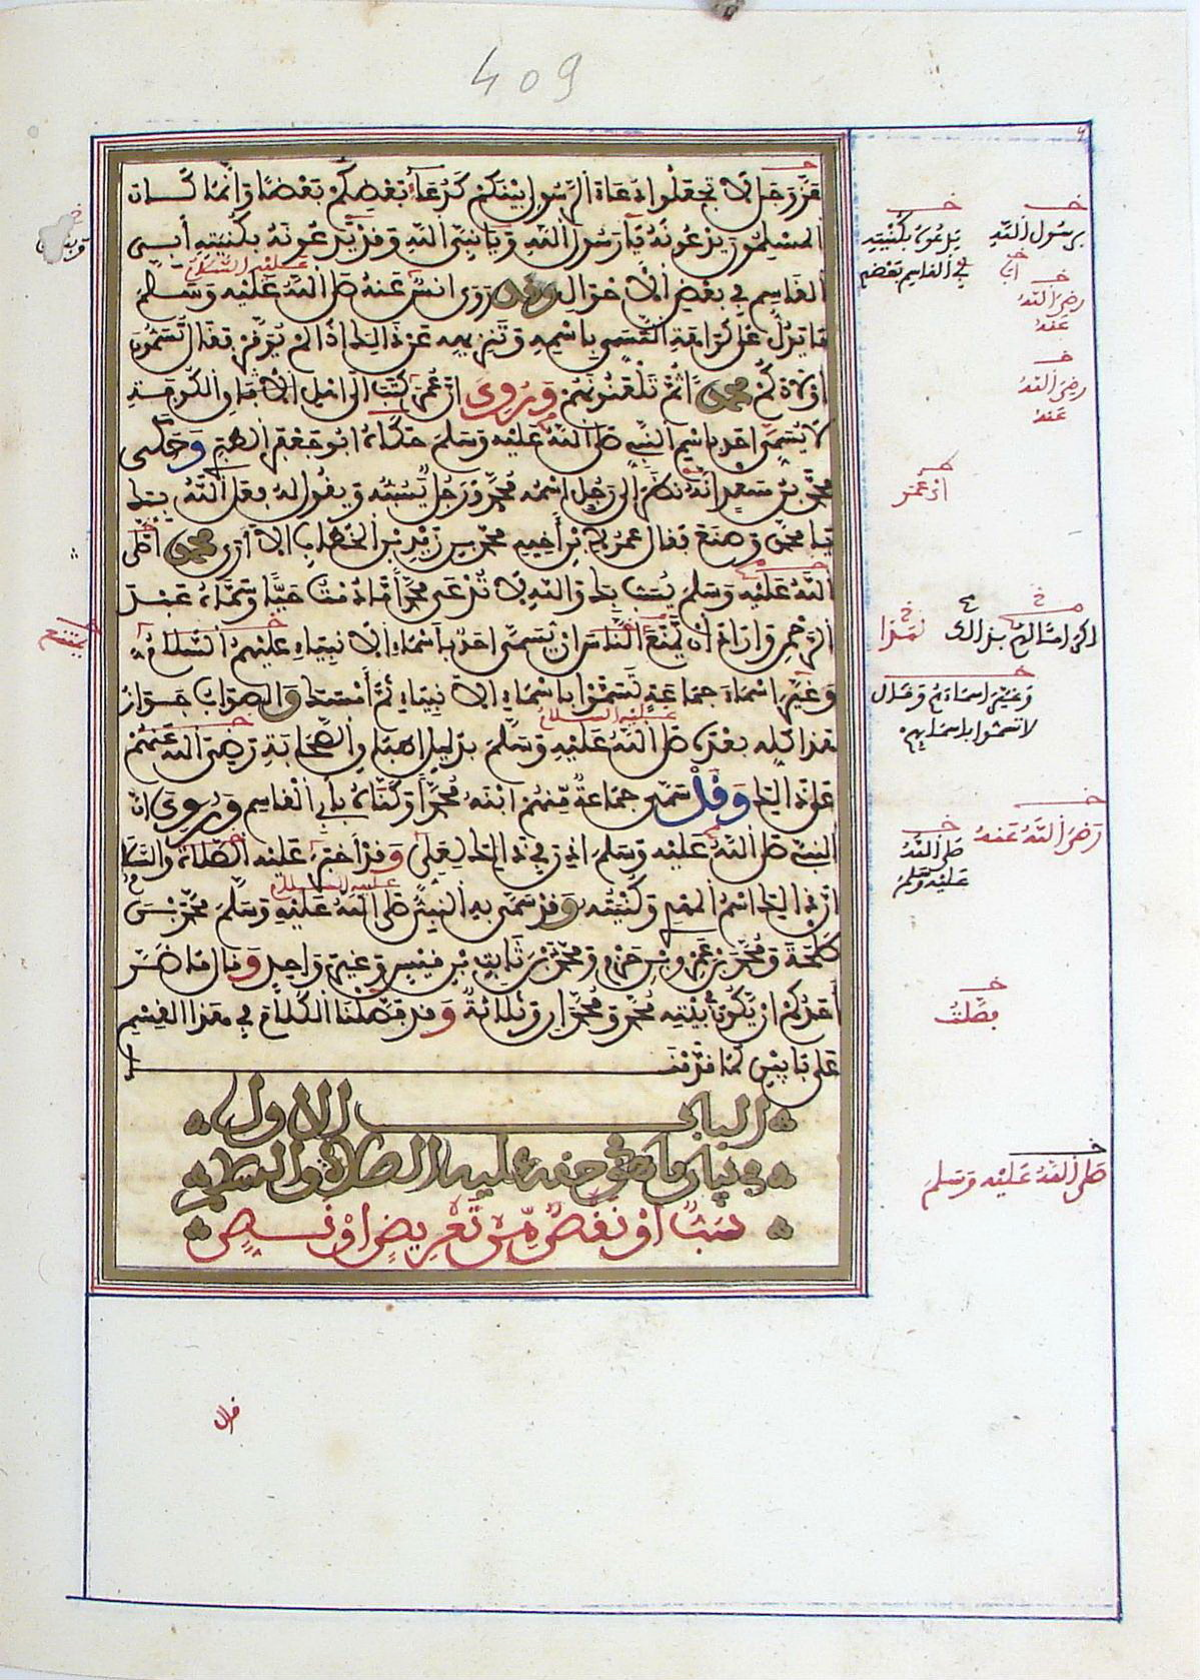 409
عز وجل لا تجعلوا دعاء الرسول بينكم كدعاء بعضكم بعضا وإنما كان
المسلمون يدعونه يا رسول الله ويا نبي الله وقد يدعونه بكنيته أبي
عليه السلام
القاسم في بعض الأحوال وقد روى أنس عنه صلى الله عليه وسلم
ما يدل على كراهة التسمي باسمه وتنزيهه عن ذلك إذا لم يوقر فقال تسمون
أولادكم محمدا ثم تلعنونهم وروي أن عمر كتب إلى أهل الكوفة
لا يسمى أحد باسم النبي صلى الله عليه وسلم حكاه أبو جعفر الطبري وحكى
محمد بن سعد أنه نظر إلى رجل اسمه محمد ورجل يسبه ويقول له فعل الله بك
يا محمد وصنع فقال عمر لابن أخيه محمد بن زيد بن الخطاب لا أرى محمدا صلى
الله عليه وسلم يسب بك والله لا تدعى محمدا ما دمت حيا وسماه عبد
الرحمن وأراد أن يمنع الناس أن يسمى أحد بأسماء الأنبياء عليهم السلام
وغير أسماء جماعة تسموا بأسماء الأنبياء ثم أمسك والصواب جواز
عليه السلام
هذا كله بعده صلى الله عليه وسلم بدليل إطباق الصحابة رضي الله عنهم
على ذلك وقد سمى جماعة منهم ابنه محمدا وكناه بأبي القاسم وروي أن
النبي صلى الله عليه وسلم أذن في ذلك لعلي وقد أخبر عليه الصلاة والسلام
عليه السلام
أن ذلك اسم المهدي وكنيته وقد سمى به النبي صلى الله عليه وسلم محمد بن
طلحة ومحمد بن عمرو بن حزم ومحمد بن ثابت بن قيس وغير واحد وقال ما ضر
أحدكم أن يكون في بيته محمد ومحمدان وثلاثة وقد فصلنا الكلام في هذا القسم
على بابين كما قدمنا
الباب الأول
في بيان ما هو في حقه عليه الصلاة والسلام
سب أو نقص من تعريض أو نص
برسول الله
يدعون بكنيته
أبي القاسم بعضهم
رضي الله
عنه
رضي الله
عنه
أن عمر
لهذا
وغير أسماءهم وقال
لا تسموا بأسمائهم
يمنع
رضي الله عنه
صلى الله
عليه وسلم
فصلت
صلى الله عليه وسلم